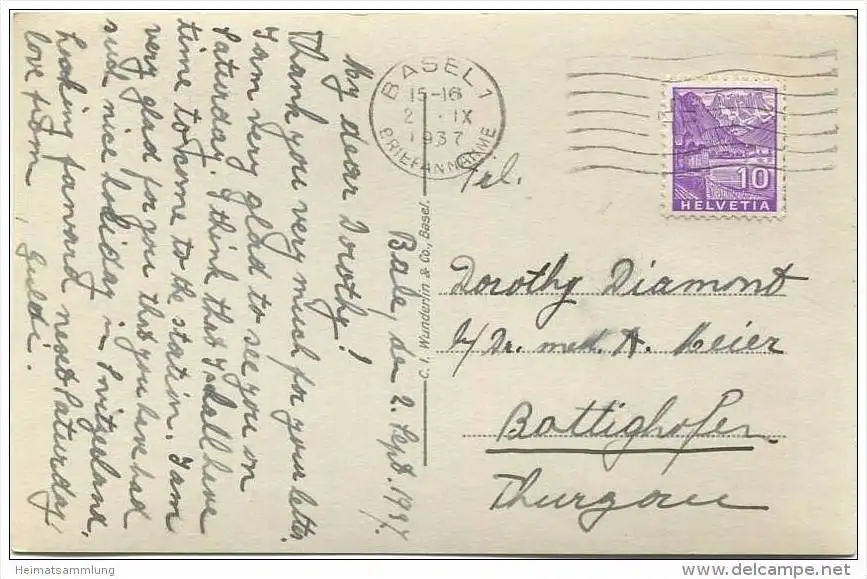 Bâle, den 2. Sept. 1937.
My dear Dorothy!
Thank you very much for your letter.
I am very glad to see you on
Saturday. I think that I shall have
time to come to the station. I am
very glad for you that you have had
such nice holiday in Switzerland,
Looking forward next Saturday
love from
Guldi.
C. I. Wunderlin & Co., Basel.
BASEL 1
15-16
2. IX
1937
BRIEFANNAHME
10
HELVETIA
Frl.
Dorothy Diamont
c/ Dr. med. A. Meier
Bottighofen
Thurgau
Heimatsammlung
www.delcampe.net